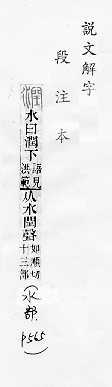 說文解字
段注本
潤 水曰潤下 語見洪範 从水閏聲 如順切十三部 (水部 p565)